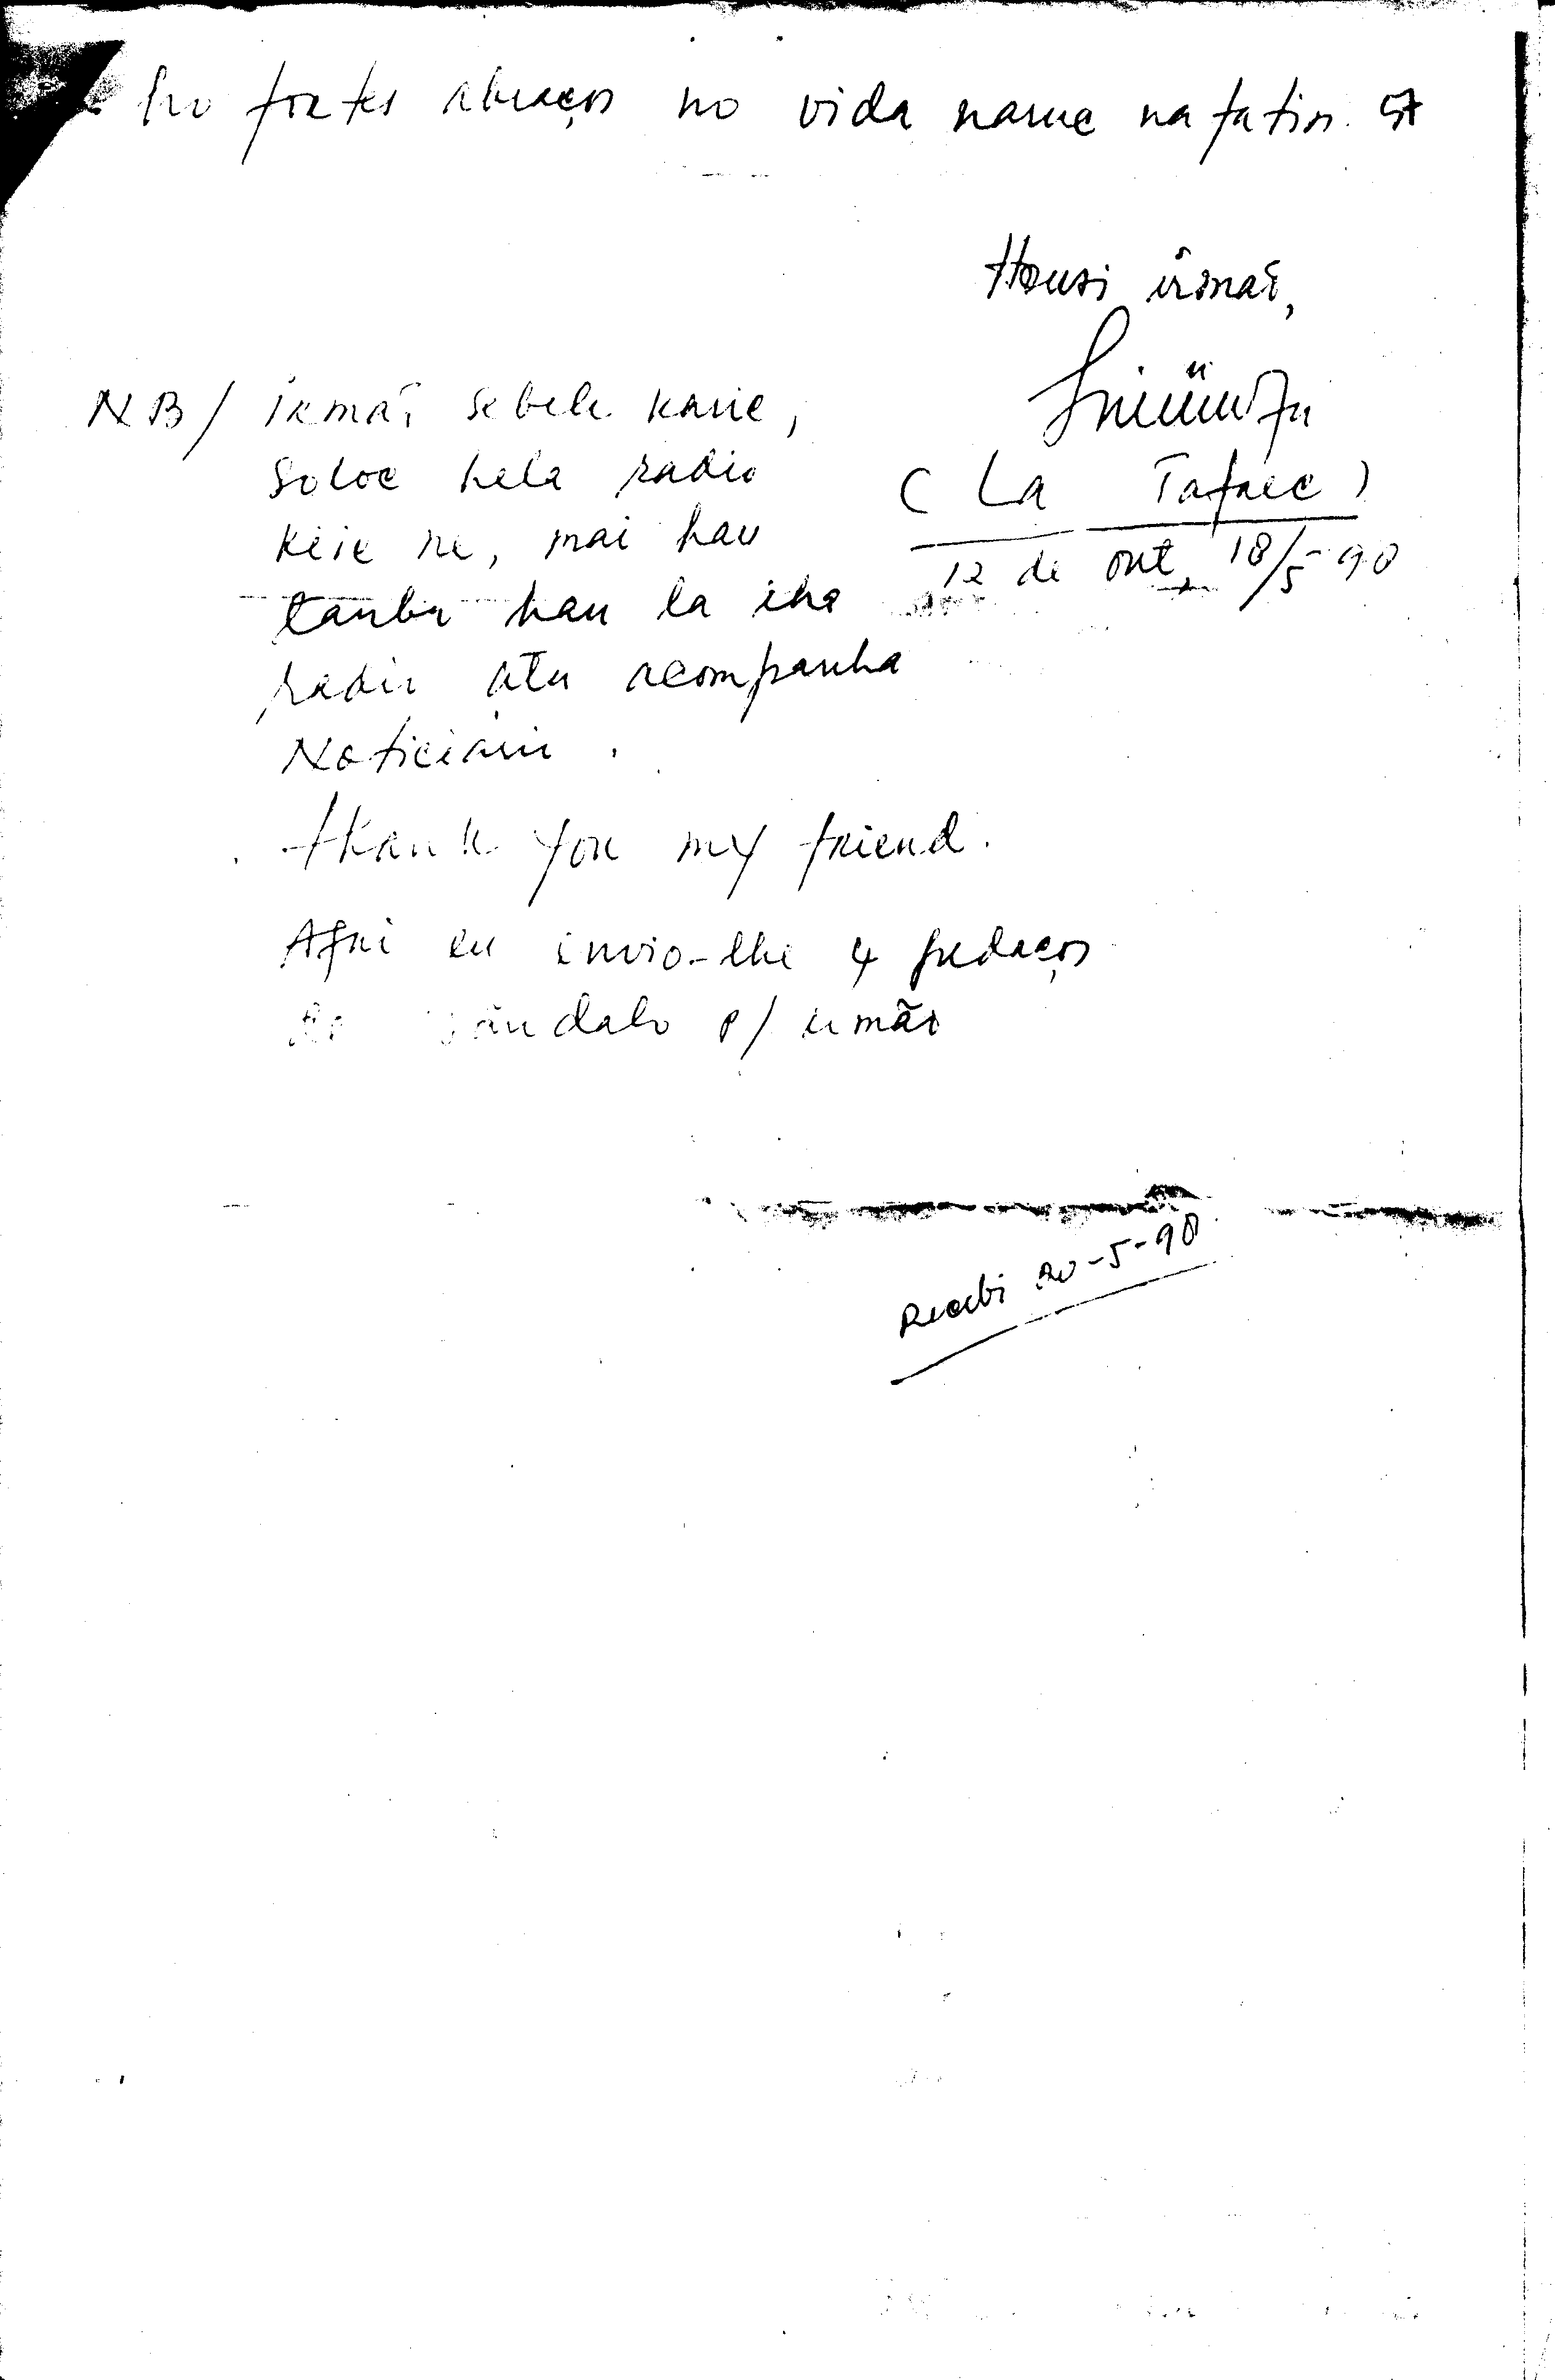 ho fortes abraços no vida naruc nafatin.
Housi irmaõ,
(La Tafaec)
12 de out, 18/5-90
NB/ irmaõ se bele karic,
soloc hela radio
kiic ne, mai hau
tamba hau la iha
radio atu acompanha
Noticiain.
thank you my friend.
Aqui eu envio-lhe 4 pedaços
de sândalo p/ irmão
Recebi 20-5-90